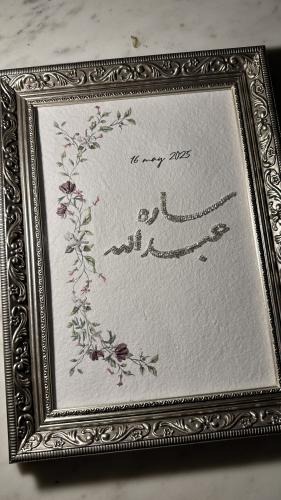 16 may 2025
ساره
عبدالله